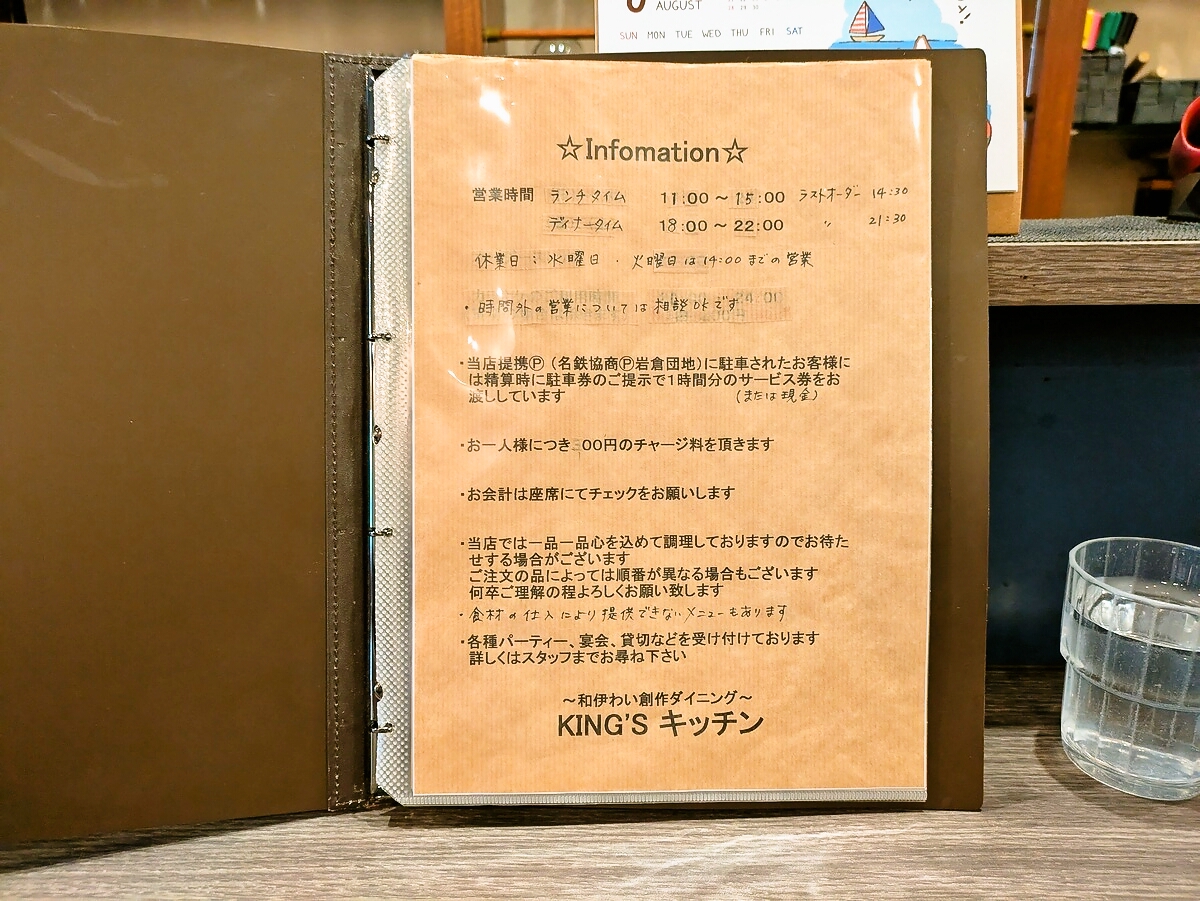 AUGUST
SUN MON TUE WED THU FRI SAT
☆Infomation☆
営業時間 ランチタイム 11:00 ～ 15:00 ラストオーダー 14:30
ディナータイム 18:00 ～ 22:00 〃 21:30
休業日：水曜日・火曜日は14:00までの営業
・時間外の営業については相談OKです
・当店提携Ⓟ（名鉄協商Ⓟ岩倉団地）に駐車されたお客様に
は精算時に駐車券のご提示で1時間分のサービス券をお
渡ししています （または現金）
・お一人様につき 00円のチャージ料を頂きます
・お会計は座席にてチェックをお願いします
・当店では一品一品心を込めて調理しておりますのでお待た
せする場合がございます
ご注文の品によっては順番が異なる場合もございます
何卒ご理解の程よろしくお願い致します
・食材の仕入により提供できないメニューもあります
・各種パーティー、宴会、貸切などを受け付けております
詳しくはスタッフまでお尋ね下さい
～和伊わい創作ダイニング～
KING'S キッチン